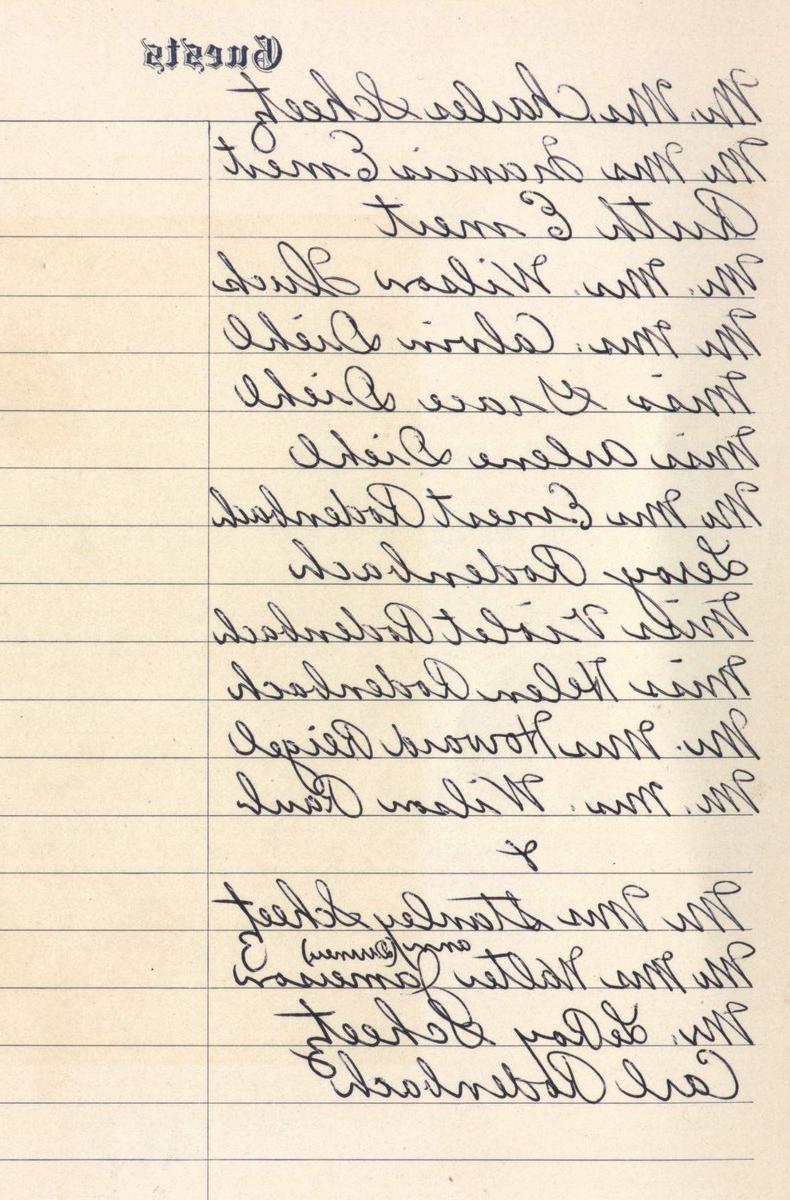 Guests
Mr. Mrs Charles Scheetz
Mr Mrs Francis Emert
Ruth Emert
Mr. Mrs. Wilson Fluck
Mr Mrs. Calvin Diehl
Miss Grace Diehl
Miss Arlene Diehl
Mr Mrs Ernest Rodenbach
Leroy Rodenbach
Miss Violet Rodenbach
Miss Helen Rodenbach
Mr. Mrs Howard Reigel
Mr. Mrs. Wilson Raub
&
Mr Mrs Stanley Scheetz
Mr Mrs Walter Jameison
ann
Mr. LeRoy Scheetz
Carl Rodenbach